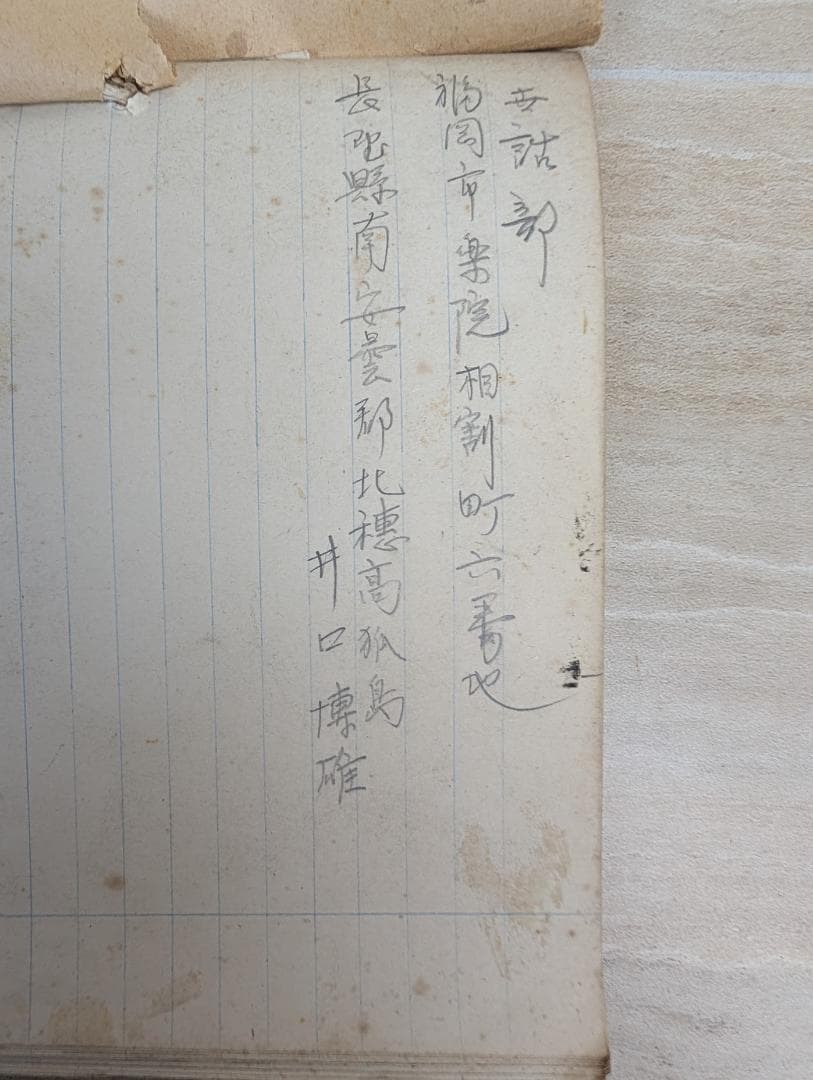 世話部
福岡市薬院相割町六番地
長野縣南安曇郡北穂高狐島
井口博雄